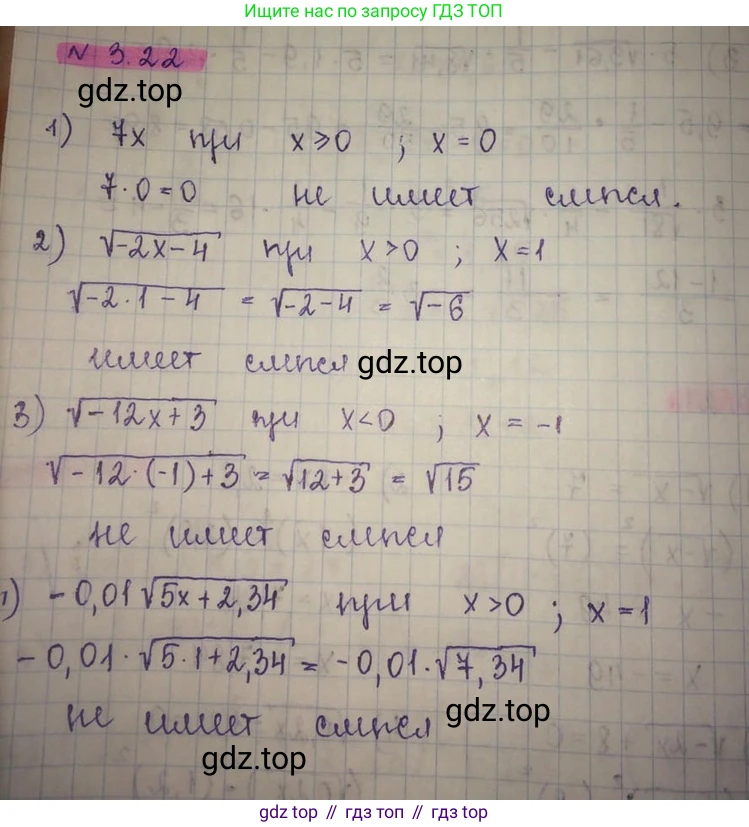 Ищите нас по запросу ГДЗ ТОП
N 3.22
gdz.top
1) 7x при x⩾0 ; x=0
7·0=0 не имеет смысл.
2) √(-2x-4) при x>0 ; x=1
√(-2·1-4) = √(-2-4) = √(-6)
имеет смысл gdz.top
3) √(-12x+3) при x<0 ; x = -1
√(-12·(-1)+3) = √(12+3) = √15
не имеет смысл
) -0,01√(5x+2,34) при x>0 ; x=1
-0,01·√(5·1+2,34) = -0,01·√(7,34)
не имеет смысл gdz.top
gdz.top
gdz.top // гдз топ // gdz.top